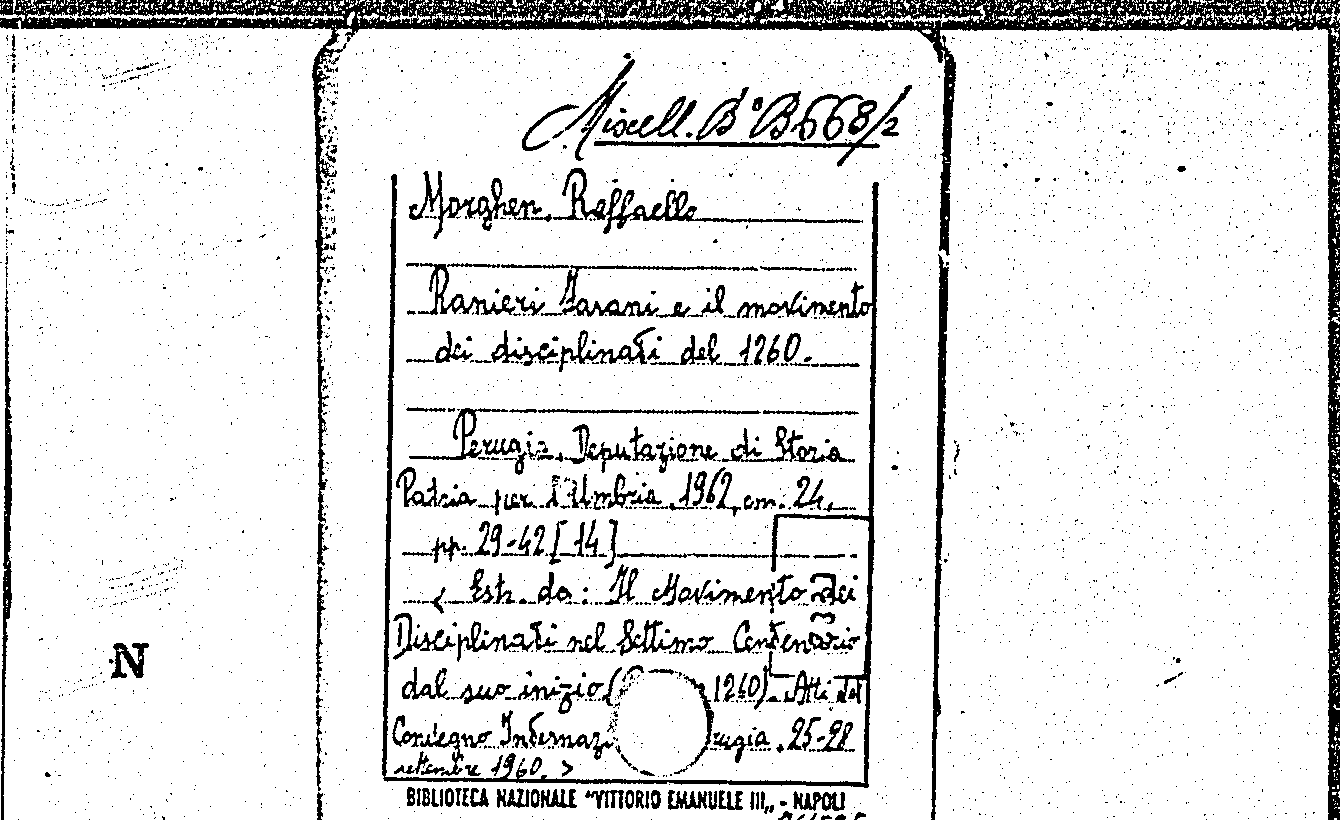 Miscell. B° B668/2
Morghen, Raffaello
Ranieri Fasani e il movimento
dei disciplinati del 1260.
Perugia, Deputazione di Storia
Patria per l'Umbria, 1962, cm. 24,
pp. 29-42 [14]
< Estr. da: Il Movimento dei
Disciplinati nel Settimo Centenario
dal suo inizio ( 1260). Atti del
Convegno Internazi rugia, 25-28
settembre 1960. >
BIBLIOTECA NAZIONALE "VITTORIO EMANUELE III„ - NAPOLI
N